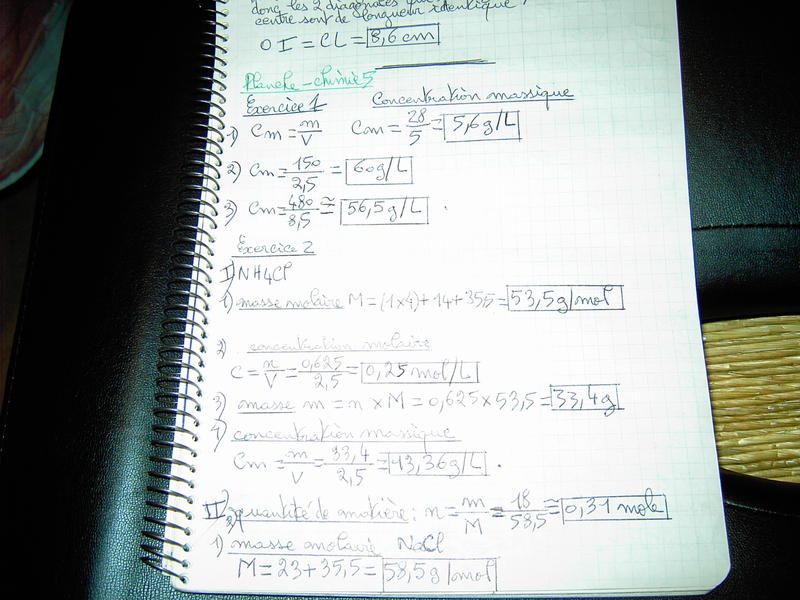 donc les 2 diagonales
centre sont de longueur identique
OI = CL = 8,6 cm
Planche-chimie 5
Exercice 1 Concentration massique
1) Cm = m/V Cm = 28/5 = 5,6 g/L
2) Cm = 150/2,5 = 60 g/L
3) Cm = 480/8,5 ≅ 56,5 g/L.
Exercice 2
I) NH4Cl
1) masse molaire M = (1×4) + 14 + 35,5 = 53,5 g/mol
2) concentration molaire
C = n/V = 0,625/2,5 = 0,25 mol/L
3) masse m = n × M = 0,625 × 53,5 = 33,4 g
4) concentration massique
Cm = m/V = 33,4/2,5 = 13,36 g/L.
II) 2) quantité de matière : n = m/M = 18/58,5 ≅ 0,31 mole
1) masse molaire NaCl
M = 23 + 35,5 = 58,5 g/mol